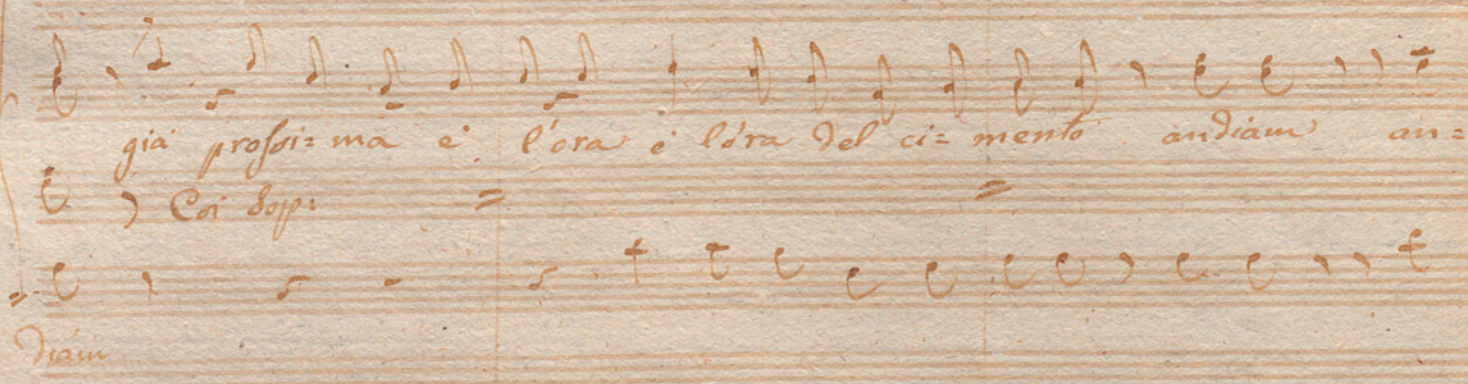 già prossi= ma e' l'ora è l'óra del ci= mento andiam an=
Coi Sop:
diam